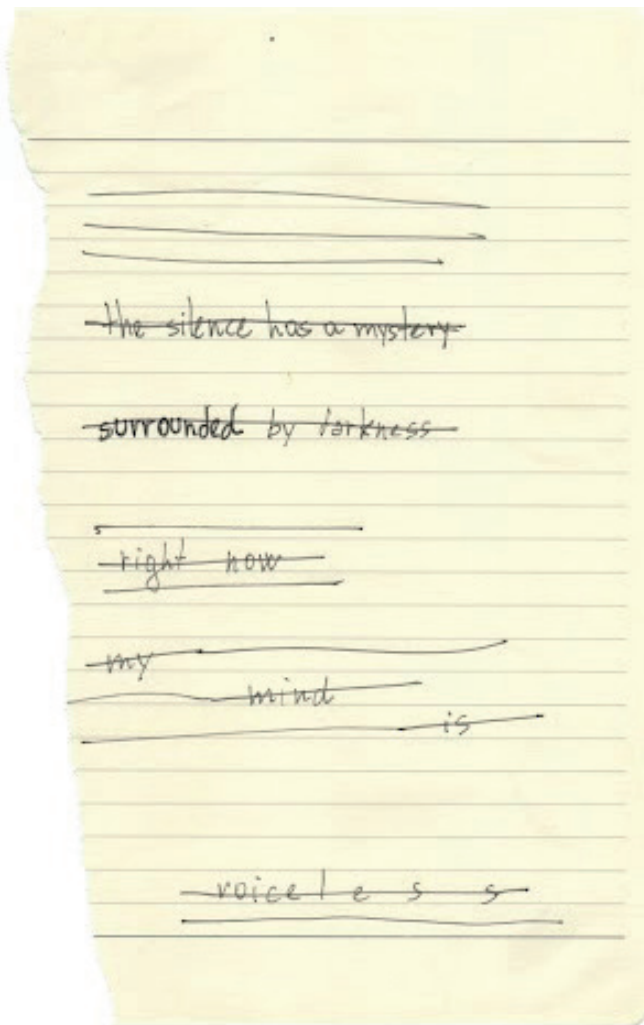 the silence has a mystery
surrounded by darkness
right now
my
mind
is
voiceless